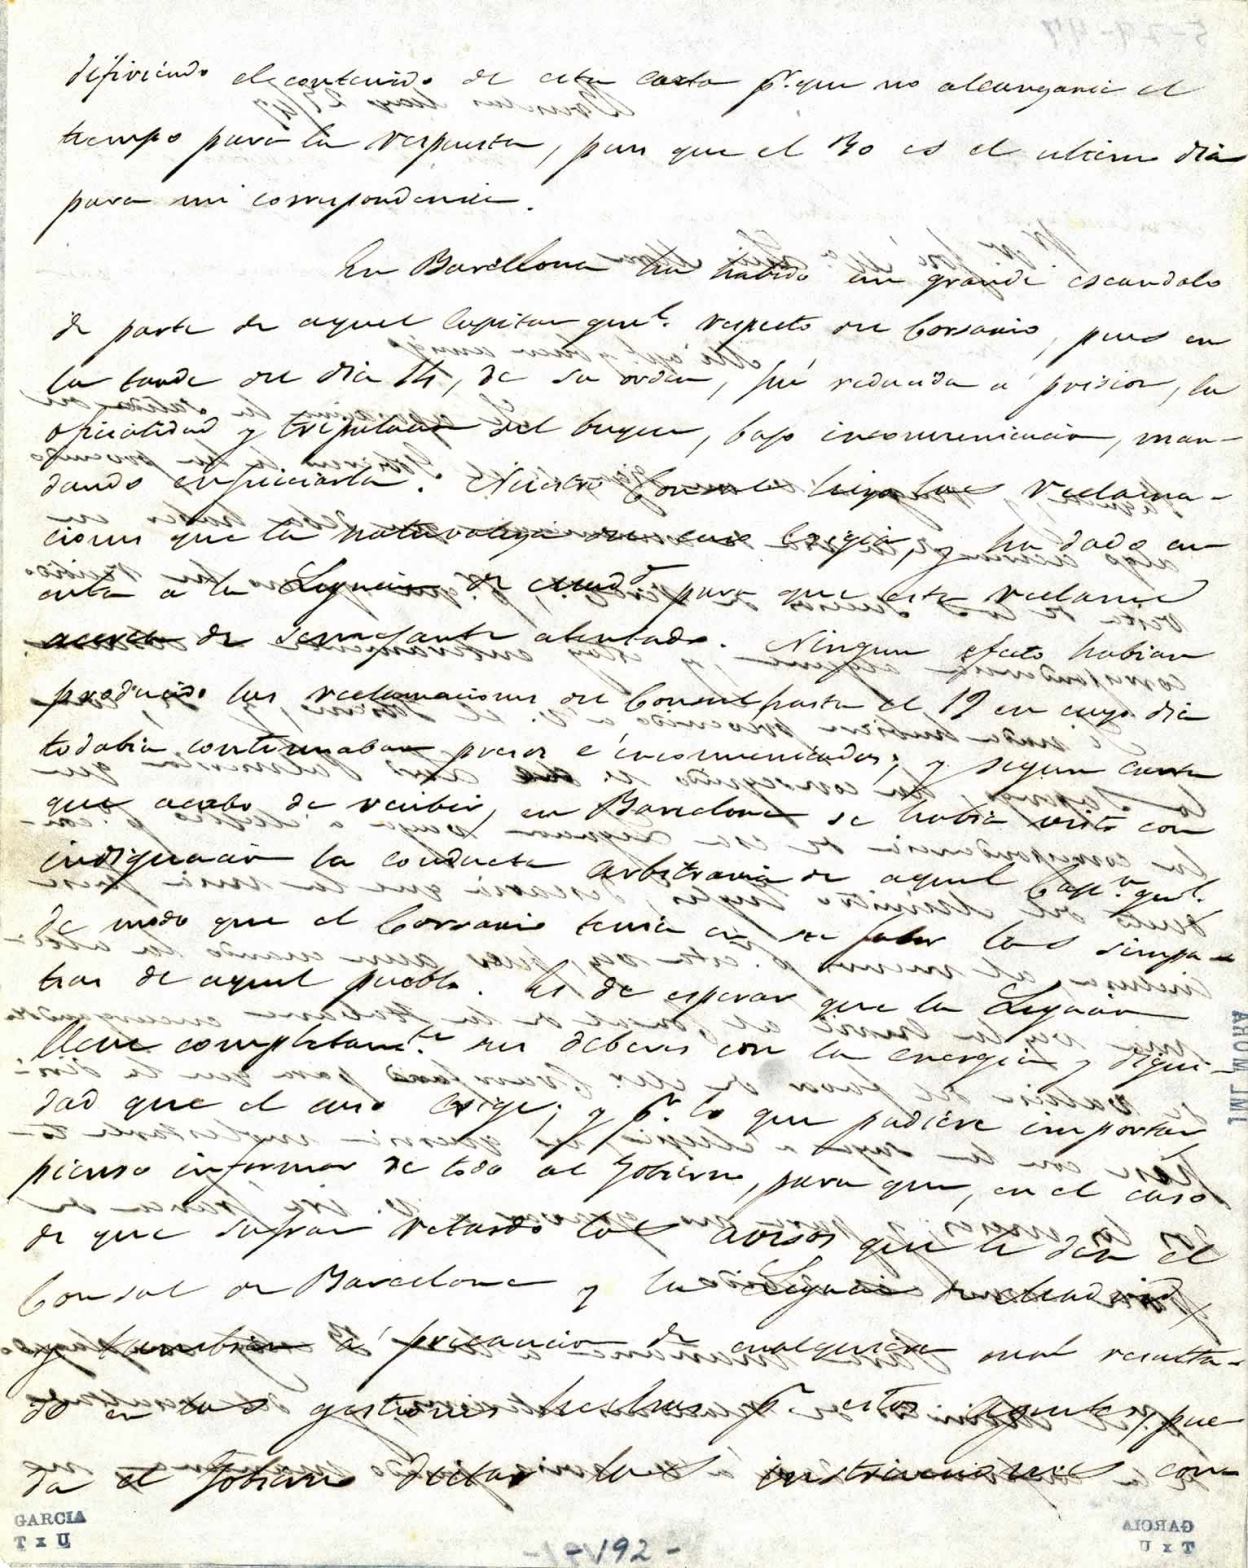 difiriendo el contenido de esta carta pr. que no alcanzaria el
tiempo para la respuesta, pues que el 30 es el ultimo dia
para mi correspondencia.
En Barcelona ha habido un grande escandalo
de parte de aquel Capitan genl. respecto del Corsario, pues en
la tarde del dia 14, de su orden, fué reducida á prision, la
oficialidad y tripulacion del buque, bajo incomunicacion, man-
dando enjuiciarla. Nuestro Consul hizo las reclama-
ciones que la naturaleza del caso exigia, y ha dado cu-
enta a la Legacion de Madd. para que esta reclame
acerca de semejante atentado. Ningun efecto habian
producido las reclamaciones del Consul hasta el 19 en cuyo dia
todabia continuaban presos é incomunicados; y segun carta
que acabo de recibir, en Barcelona se habia visto con
indignacion la conducta arbitraria de aquel Capn. genl.
de modo que el Corsario tenia en su fabor las simpa-
tias de aquel pueblo. Es de esperar que la Legacion
llene completamte. sus deberes con la energia y digni-
dad que el caso exige; y pr. lo que pudiere importar
pienso informar de todo al Gobierno, para que, en el caso
de que sufran retardo los avisos que le den el
Consul de Barcelona y la Legacion de Madrid
y tambien á precaucion de cualquiera mal resulta-
do en las gestiones hechas pr. estos Agentes, pue-
da el Gobierno dictar las instrucciones con-
GARCIA
T x U
-192-
JML MORA